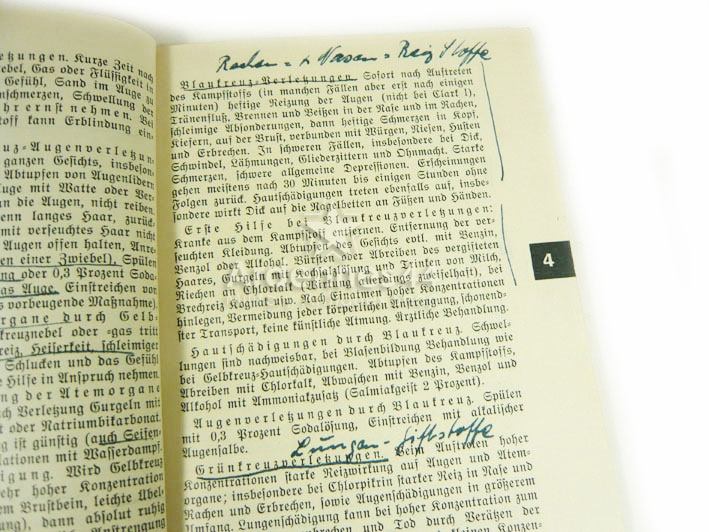 etzungen. Kurze Zeit nach
nebel, Gas oder Flüssigkeit in
Gefühl, Sand im Auge zu
schmerzen, Schwellung der
hr ernst nehmen. Bei
toff kann Erblindung ein-
euz-Augenverletzun-
ganzen Gesichts, insbeson-
Abtupfen von Augenlidern
uge mit Watte oder Ver-
n die Augen, nicht reiben.
enn langes Haar, zurück.
mit verseuchtes Haar nicht
Augen offen halten, Anre-
en einer Zwiebel), Spülen
ng oder 0,3 Prozent Soda-
as Auge. Einstreichen von
s vorbeugende Maßnahme).
rgane durch Gelb-
kreuznebel oder -gas tritt
reiz, Heiserkeit, schleimiger
Schlucken und das Gefühl
e Hilfe in Anspruch nehmen.
ng der Atemorgane
ch Verletzung Gurgeln mit
t oder Natriumbikarbonat.
ng ist günstig (auch Seifen-
lationen mit Wasserdampf.
igung. Wird Gelbkreuz
hr hoher Konzentration
m Brustbein, leichte Übel-
ung), dann absolut ruhig
Anstrengung
Rachen = & Nasen = Reiz Stoffe
Blaukreuz-Verletzungen. Sofort nach Auftreten
des Kampfstoffs (in manchen Fällen aber erst nach einigen
Minuten) heftige Reizung der Augen (nicht bei Clark I),
Tränenfluß, Brennen und Beißen in der Nase und im Rachen,
schleimige Absonderungen, dann heftige Schmerzen in Kopf,
Kiefern, auf der Brust, verbunden mit Würgen, Niesen, Husten
und Erbrechen. In schweren Fällen, insbesondere bei Dick,
Schwindel, Lähmungen, Gliederzittern und Ohnmacht. Starke
Schmerzen, schwere allgemeine Depressionen. Erscheinungen
gehen meistens nach 30 Minuten bis einigen Stunden ohne
Folgen zurück. Hautschädigungen treten ebenfalls auf, insbe-
sondere wirkt Dick auf die Nagelbetten an Füßen und Händen.
Erste Hilfe bei Blaukreuzverletzungen:
Kranke aus dem Kampfstoff entfernen. Entfernung der ver-
seuchten Kleidung. Abtupfen des Gesichts evtl. mit Benzin,
Benzol oder Alkohol. Bürsten oder Abreiben des vergifteten
Haares, Gurgeln mit Sodalösung, Trinken von Milch,
Riechen an Chlorkalk (Wirkung allerdings zweifelhaft), bei
Brechreiz Kognak usw. Nach Einatmen hoher Konzentrationen
hinlegen, Vermeidung jeder körperlichen Anstrengung, schonend-
ster Transport, keine künstliche Atmung. Ärztliche Behandlung.
Hautschädigungen durch Blaukreuz. Schwel-
lungen sind nachweisbar, bei Blasenbildung Behandlung wie
bei Gelbkreuz-Hautschädigungen. Abtupfen des Kampfstoffs,
Abreiben mit Chlorkalk, Abwaschen mit Benzin, Benzol und
Alkohol mit Ammoniakzusatz (Salmiakgeist 2 Prozent).
Augenverletzungen durch Blaukreuz. Spülen
mit 0,3 Prozent Sodalösung, Einstreichen mit alkalischer
Augensalbe.
Lungen-Giftstoffe
Grünkreuzverletzungen. Beim Auftreten hoher
Konzentrationen starke Reizwirkung auf Augen und Atem-
organe; insbesondere bei Chlorpikrin starker Reiz in Nase und
Rachen und Erbrechen, sowie Augenschädigungen in größerem
Umfang. Lungenschädigung kann bei hoher Konzentration zum
und Tod durch Verätzen der
kleinen Konzen
4